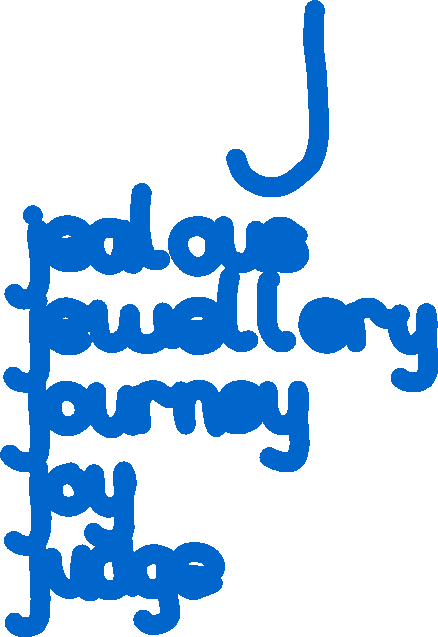 J
jealous
jewellery
journey
joy
judge